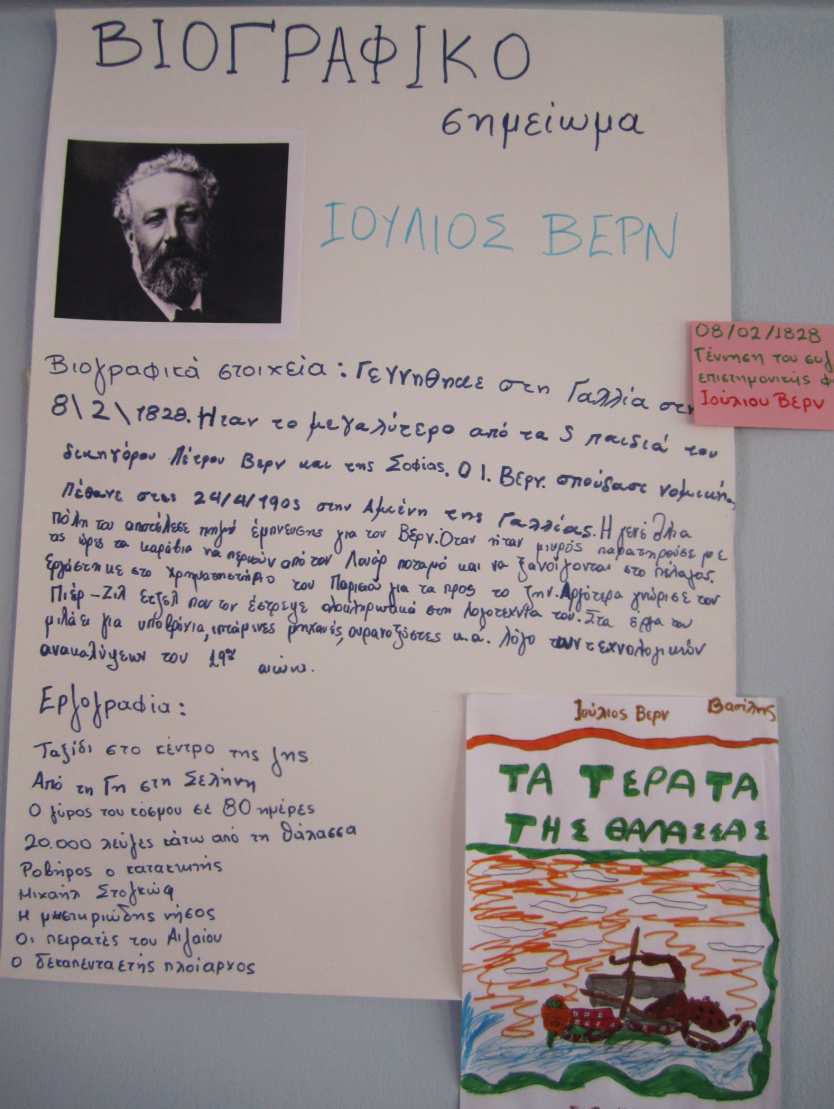 ΒΙΟΓΡΑΦΙΚΟ
σημείωμα
ΙΟΥΛΙΟΣ ΒΕΡΝ
08/02/1828
Γέννηση του συγ
επιστημονικής φ
Ιούλιου Βερν
Βιογραφικά στοιχεία: Γεννήθηκε στη Γαλλία στη
8\2\1828. Ήταν το μεγαλύτερο από τα 5 παιδιά του
δικηγόρου Πέτρου Βερν και της Σοφίας. Ο Ι. Βερν. σπούδασε νομική.
Πέθανε στις 24/4/1905 στην Αμιένη της Γαλλίας. Η γενέθλια
πόλη του αποτέλεσε πηγή έμπνευσης για τον Βερν. Όταν ήταν μικρός παρατηρούσε με
τις ώρες τα καράβια να περνούν από τον Λουάρ ποταμό και να ξανοίγονται στο πέλαγος.
Εργάστηκε στο χρηματιστήριο του Παρισιού για τα προς το ζην. Αργότερα γνώρισε τον
Πιέρ-Ζιλ Ετζέλ που τον έστρεψε ολοκληρωτικά στη λογοτεχνία του. Στα έργα του
μιλάει για υποβρύχια, ιπτάμενες μηχανές, ουρανοξύστες κ.α. λόγο των τεχνολογικών
ανακαλύψεων του 19ου αιώνα.
Εργογραφία:
Ταξίδι στο κέντρο της γης
Από τη Γη στη Σελήνη
Ο γύρος του κόσμου σε 80 ημέρες
20.000 λεύγες κάτω από τη θάλασσα
Ροβήρος ο κατακτητής
Μιχαήλ Στογκώφ
Η μυστηριώδης νήσος
Οι πειρατές του Αιγαίου
Ο δεκαπενταετής πλοίαρχος
Ιούλιος Βερν Βασίλης
ΤΑ ΤΕΡΑΤΑ
ΤΗΣ ΘΑΛΑΣΣΑΣ